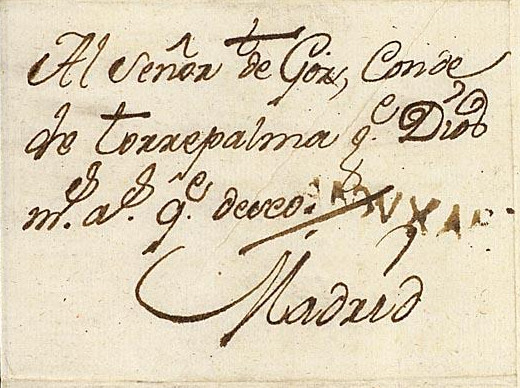 Al Señor de Gor, Conde
de torrepalma q.e Dios
m.s a.s q.e deseo.
Madrid